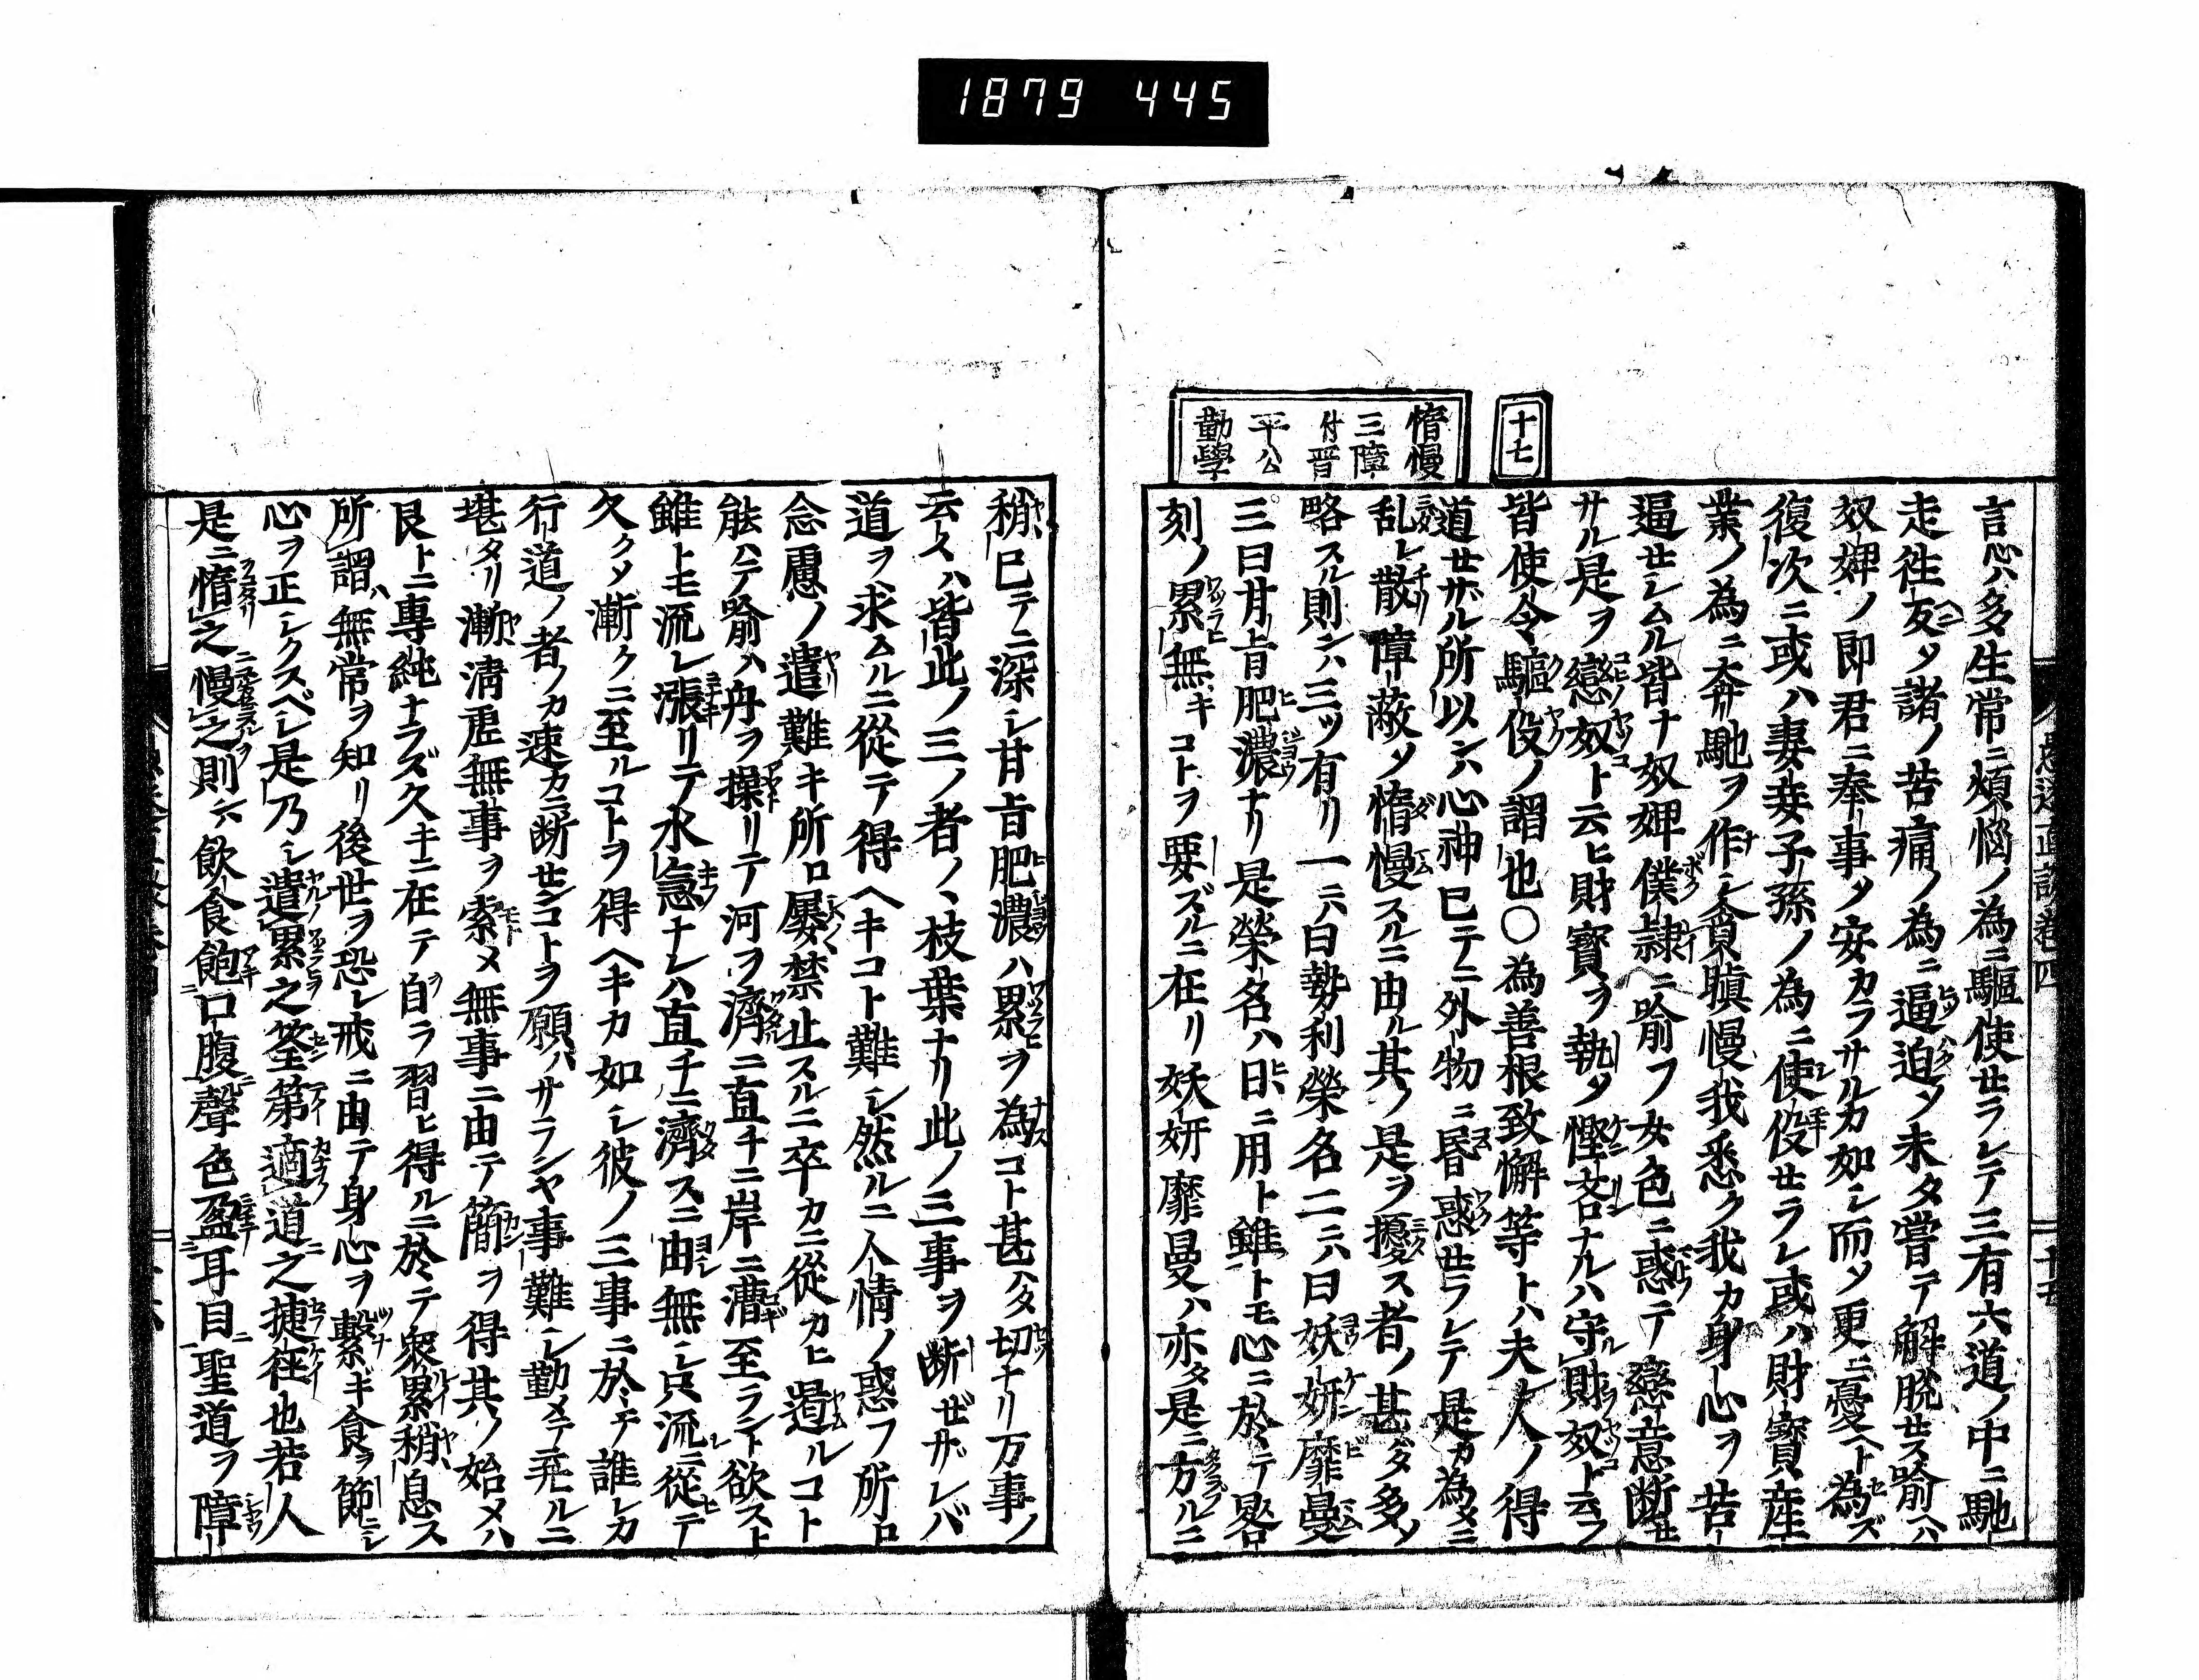 1879 445
十七
惰慢
三障
付晋
平公
勤學
言心ハ多生常ニ煩悩ノ為ニ驅使セラレテ三有六道ノ中ニ馳
走往反〆諸ノ苦痛ノ為ニ逼迫〆未タ嘗テ解脱セス喩ヘハ
奴婢ノ即君ニ奉事〆安カラサルカ如シ而〆更ニ憂ヘト為ズ
復次ニ或ハ妻妾子孫ノ為ニ使役セラレ或ハ財寶産
業ノ為ニ奔馳ヲ作シ貪瞋慢我悉ク我カ身心ヲ苦
逼セシムル皆ナ奴婢僕隷ニ喩フ女色ニ惑テ戀意断セ
サル是ヲ戀奴ト云ヒ財寶ヲ執〆慳吝ナルハ守財奴ト云フ
皆使令驅役ノ謂也〇為善根致懈等トハ夫人ノ得
道セザル所以ンハ心神已テニ外物ニ昏惑セラレテ是カ為メニ
乱レ散リ障蔽〆惰慢スルニ由ル其ノ是ヲ擾ス者ノ甚ダ多〆
略スル則ンハ三ツ有リ一ニハ曰勢利榮名二ニハ曰妖妍靡曼
三曰甘旨肥濃ナリ是榮名ハ日ニ用ト雖トモ心ニ於テ晷
刻ノ累無キコトヲ要ズルニ在リ妖妍靡曼ハ亦タ是ニ方ルニ
稍已テニ深シ甘旨肥濃ハ累ヲ為コト甚ハタ切ナリ万事ノ
云々ハ皆此ノ三ノ者ノ枝葉ナリ此ノ三事ヲ断ゼザレバ
道ヲ求ムルニ從テ得ヘキコト難シ然ルニ人情ノ惑フ所ロ
念慮ノ遣難キ所ロ屡禁止スルニ卒カニ從カヒ遏ルコト
能ハテ喩ハ舟ヲ操リテ河ヲ濟ニ直チニ岸ニ漕至ラント欲スト
雖トモ流レ漲リテ水急ナレハ直チニ濟スニ由無シ只流ニ從テ
久ク〆漸クニ至ルコトヲ得ヘキカ如シ彼ノ三事ニ於テ誰レカ
行道ノ者ノカ速カニ断センコトヲ願ハサランヤ事難シ勤メテ茲ルニ
堪タリ漸清虚無事ヲ索メ無事ニ由テ簡ヲ得其ノ始メハ
艮トニ專純ナラズ久キニ在テ自ラ習ヒ得ルニ於テ衆累稍息ス
所謂ハ無常ヲ知リ後世ヲ恐レ戒ニ由テ身心ヲ繋ギ食ヲ節ニシ
心ヲ正シクスベシ是乃シ遣累之筌第適道之捷徑也若人
是ニ惰之慢之則ハ飲食飽口腹聲色盈耳目聖道ヲ障